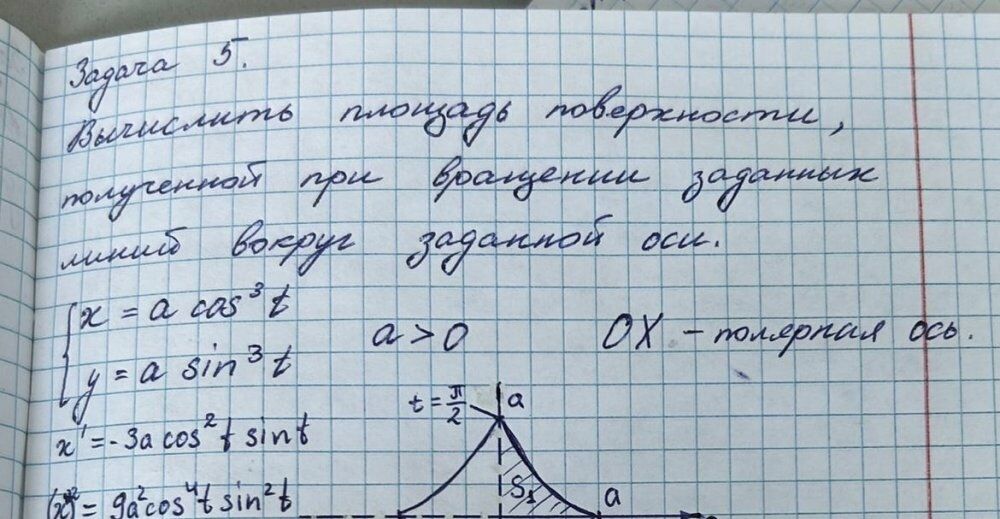 Задача 5.
Вычислить площадь поверхности,
полученной при вращении заданных
линий вокруг заданной оси.
x = a cos³ t
y = a sin³ t
a > 0
OX – полярная ось.
x' = -3a cos² t sin t
(x')² = 9a² cos⁴ t sin² t
t = π/2
a
S₁
a